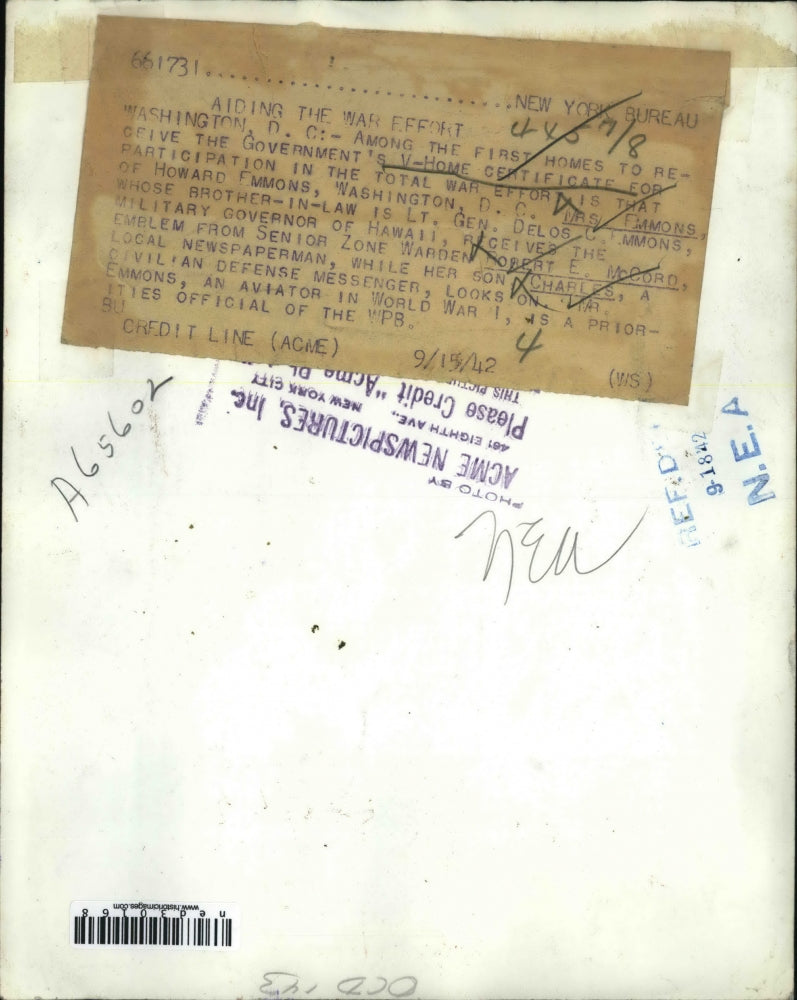 661731......................NEW YORK BUREAU
AIDING THE WAR EFFORT
445 M/8
WASHINGTON, D. C:- AMONG THE FIRST HOMES TO RE-
CEIVE THE GOVERNMENT'S V-HOME CERTIFICATE FOR
PARTICIPATION IN THE TOTAL WAR EFFORT IS THAT
OF HOWARD EMMONS, WASHINGTON, D. C. MRS. EMMONS,
WHOSE BROTHER-IN-LAW IS LT. GEN. DELOS C. EMMONS,
MILITARY GOVERNOR OF HAWAII, RECEIVES THE
EMBLEM FROM SENIOR ZONE WARDEN ROBERT E. MCCORD,
LOCAL NEWSPAPERMAN, WHILE HER SON CHARLES, A
CIVILIAN DEFENSE MESSENGER, LOOKS ON. MR.
EMMONS, AN AVIATOR IN WORLD WAR I, IS A PRIOR-
ITIES OFFICIAL OF THE WPB.
BU
CREDIT LINE (ACME) 9/15/42 (WS)
4
A65602
PHOTO BY
ACME NEWSPICTURES, Inc.
461 EIGHTH AVE., NEW YORK CITY
Please Credit "Acme
THIS
REF. D
9-1842
N.E.A
NEA
ned30168
www.historicimages.com
OCD 143